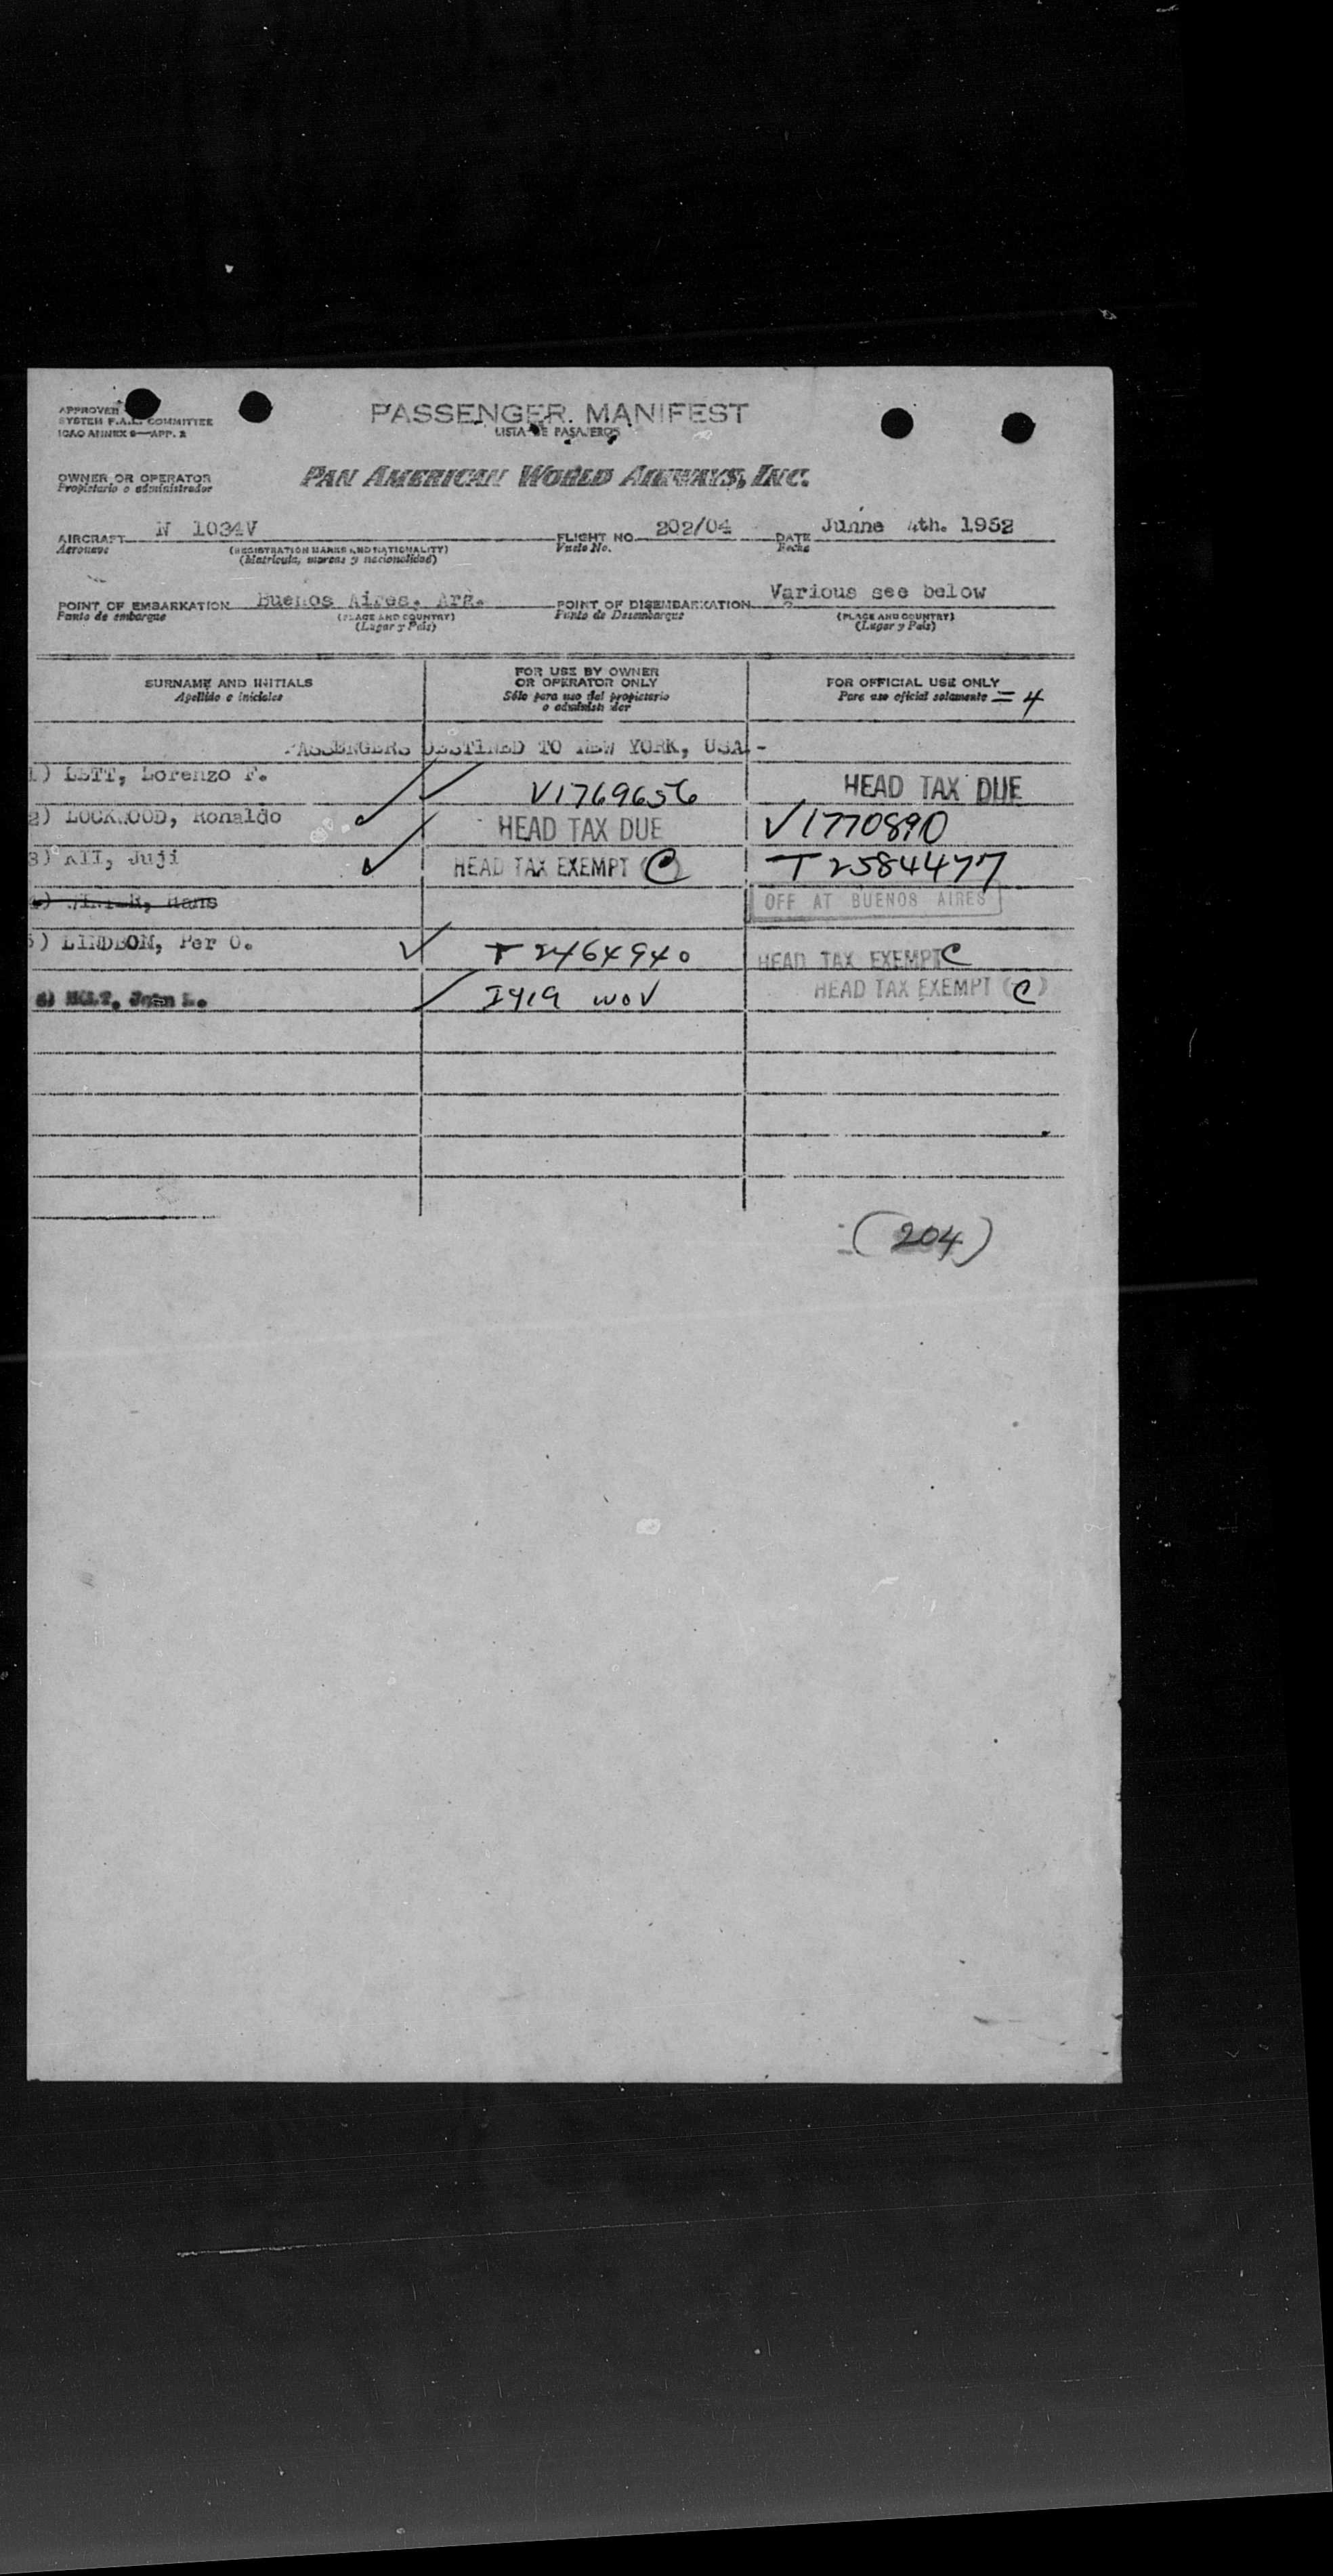 APPROVED
SYSTEM F.A.L. COMMITTEE
ICAO ANNEX 9—APP. 2
PASSENGER MANIFEST
LISTA DE PASAJEROS
OWNER OR OPERATOR
Propietario o administrador
PAN AMERICAN WORLD AIRWAYS, INC.
AIRCRAFT N 1034V FLIGHT NO. 202/04 DATE Junne 4th. 1952
Aeronave (REGISTRATION MARKS AND NATIONALITY) Vuelo No. Fecha
(Matricula, marcas y nacionalidad)
POINT OF EMBARKATION Buenos Aires, Arg. POINT OF DISEMBARKATION Various see below
Punto de embarque (PLACE AND COUNTRY) Punto de Desembarque (PLACE AND COUNTRY)
(Lugar y País) (Lugar y País)
SURNAME AND INITIALS FOR USE BY OWNER OR OPERATOR ONLY FOR OFFICIAL USE ONLY
Apellido e iniciales Sólo para uso del propietario o administrador Para uso oficial solamente = 4
PASSENGERS DESTINED TO NEW YORK, USA.-
1) LETT, Lorenzo F. V1769656 HEAD TAX DUE
2) LOCKWOOD, Ronaldo HEAD TAX DUE V1770890
3) Juji HEAD TAX EXEMPT (C) T2584477
Hans OFF AT BUENOS AIRES
5) LINDBOM, Per O. T 2464940 HEAD TAX EXEMPT C
6) HOLT, L. I419 WOV HEAD TAX EXEMPT (C)
(204)